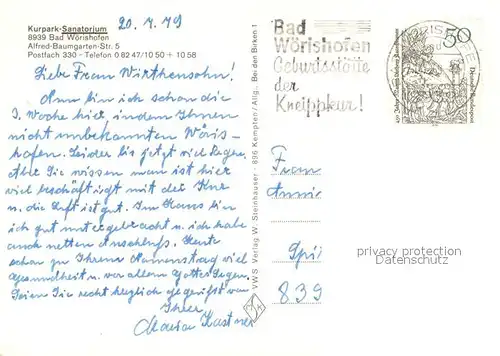 Kurpark-Sanatorium
8939 Bad Wörishofen
Alfred-Baumgarten-Str. 5
Postfach 330 - Telefon 0 82 47/10 50 + 10 58
20.7.79
Liebe Frau Wirthensohn!
Nun bin ich schon die
3. Woche hier, in dem Ihnen
nicht unbekannten Wöris-
hofen. Leider bis jetzt viel Regen.
Aber Sie wissen man ist hier
viel beschäftigt mit der Kur
u. die Luft ist gut. Im Haus bin
ich gut untergebracht u. ich habe
auch netten Anschluß. Heute
schon zu Ihrem Namenstag viel
Gesundheit u. vor allem Gottes Segen.
Seien Sie recht herzlich gegrüßt von
Ihrer
Maria Kastner
VWS Verlag W. Steinhauser · 896 Kempten/Allg., Bei den Birken 1
Bad
Wörishofen
Geburtsstätte
der
Kneippkur!
50
Deutsche Bundespost
Frau
Annie
Spi
839
privacy protection
Datenschutz